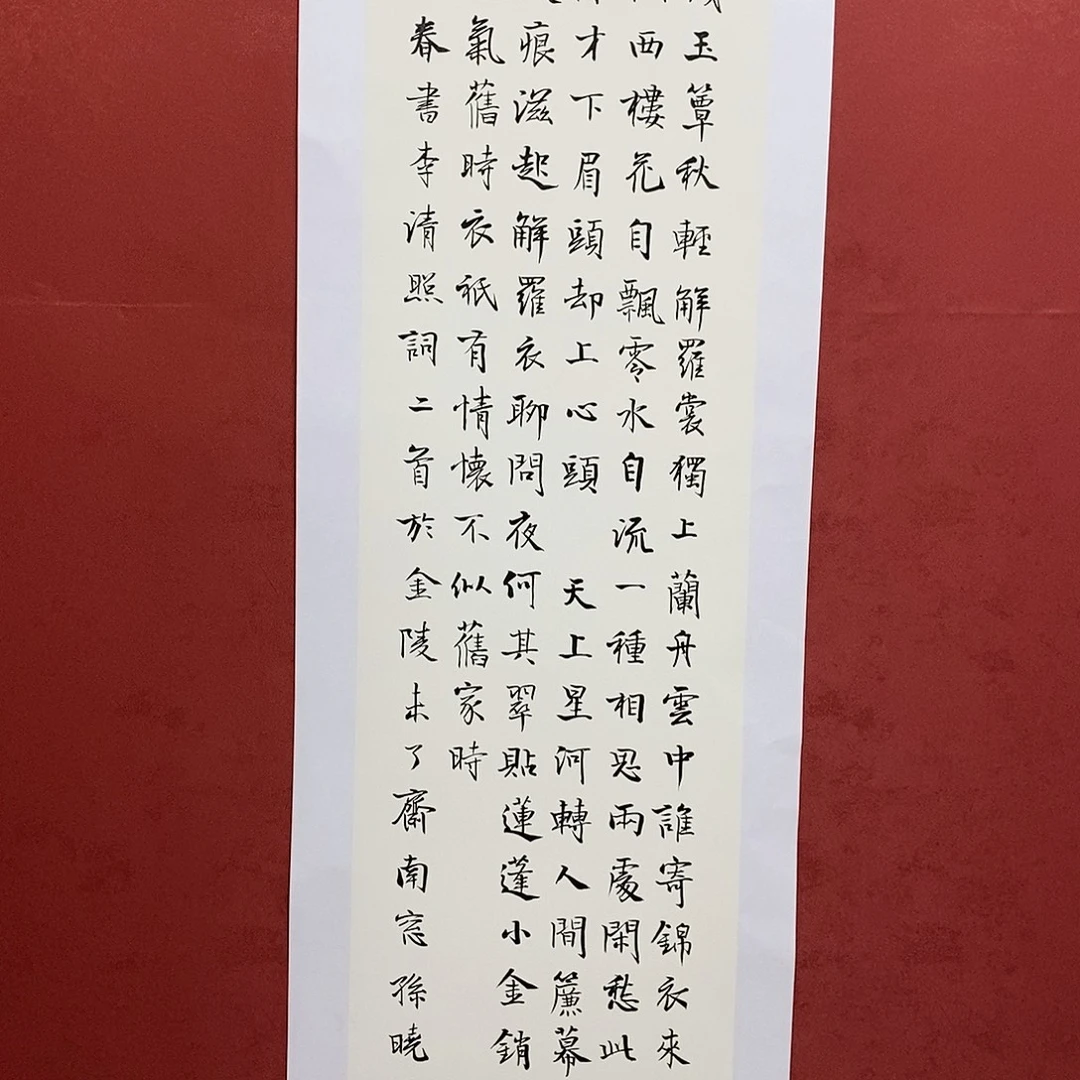 玉簟秋輕解羅裳獨上蘭舟雲中誰寄錦衣來
西樓花自飄零水自流一種相思兩處閑愁此
才下眉頭却上心頭 天上星河轉人間簾幕
痕滋起解羅衣聊問夜何其翠貼蓮蓬小金銷
氣舊時衣祇有情懷不似舊家時
春書李清照詞二首於金陵未了齋南窓孫曉